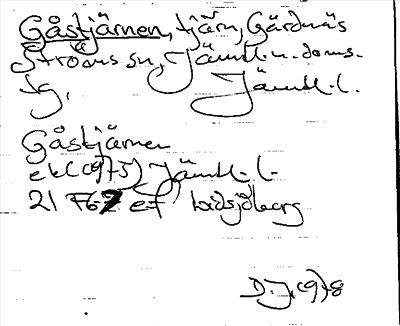 Gåstjärnen, tjärn, Gärdnäs
Ströms sn, Jämtl. n. doms.
tg, Jämtl. l.
Gåstjärnen
ek (1975) Jämtl. l.
21 F 6-7 e-f
D. J. 1978